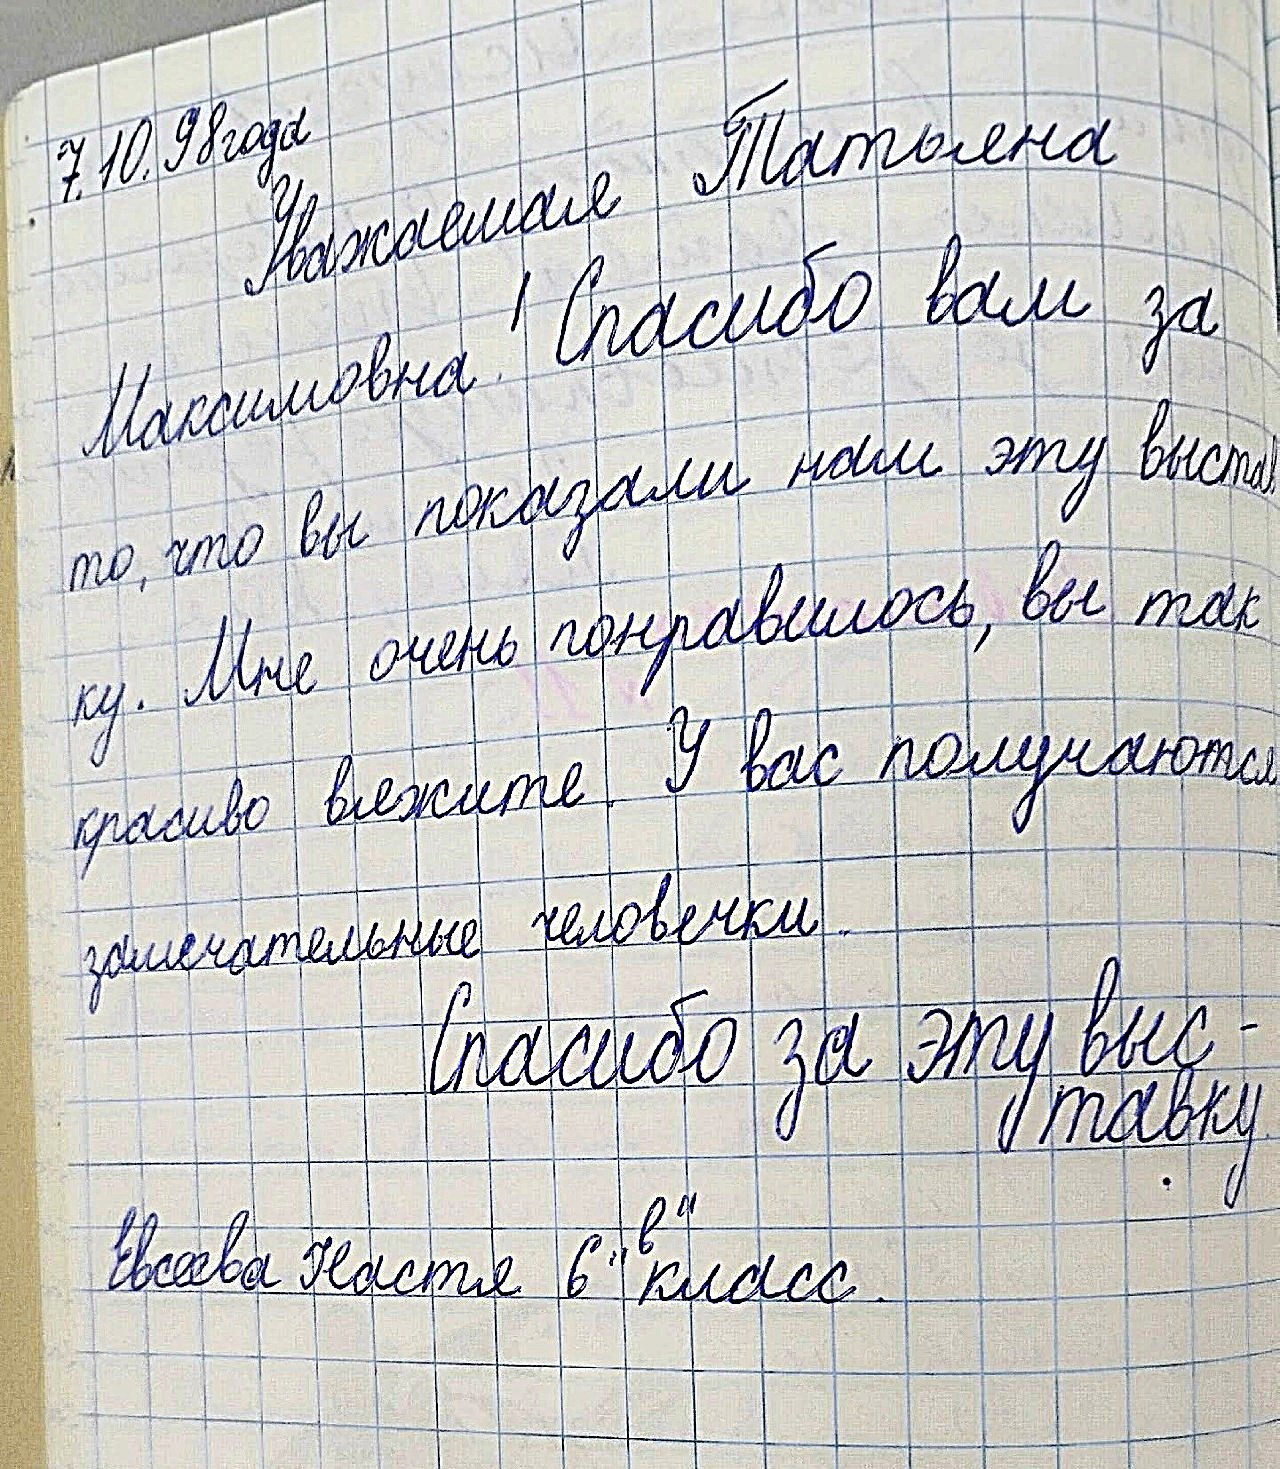 7.10.98 года
Уважаемая Татьяна
Максимовна! Спасибо вам за
то, что вы показали нам эту выстав
ку. Мне очень понравилось, вы так
красиво вяжите. У вас получаются
замечательные человечки.
Спасибо за эту выс-
тавку.
Евсеева Настя 6 "в" класс.